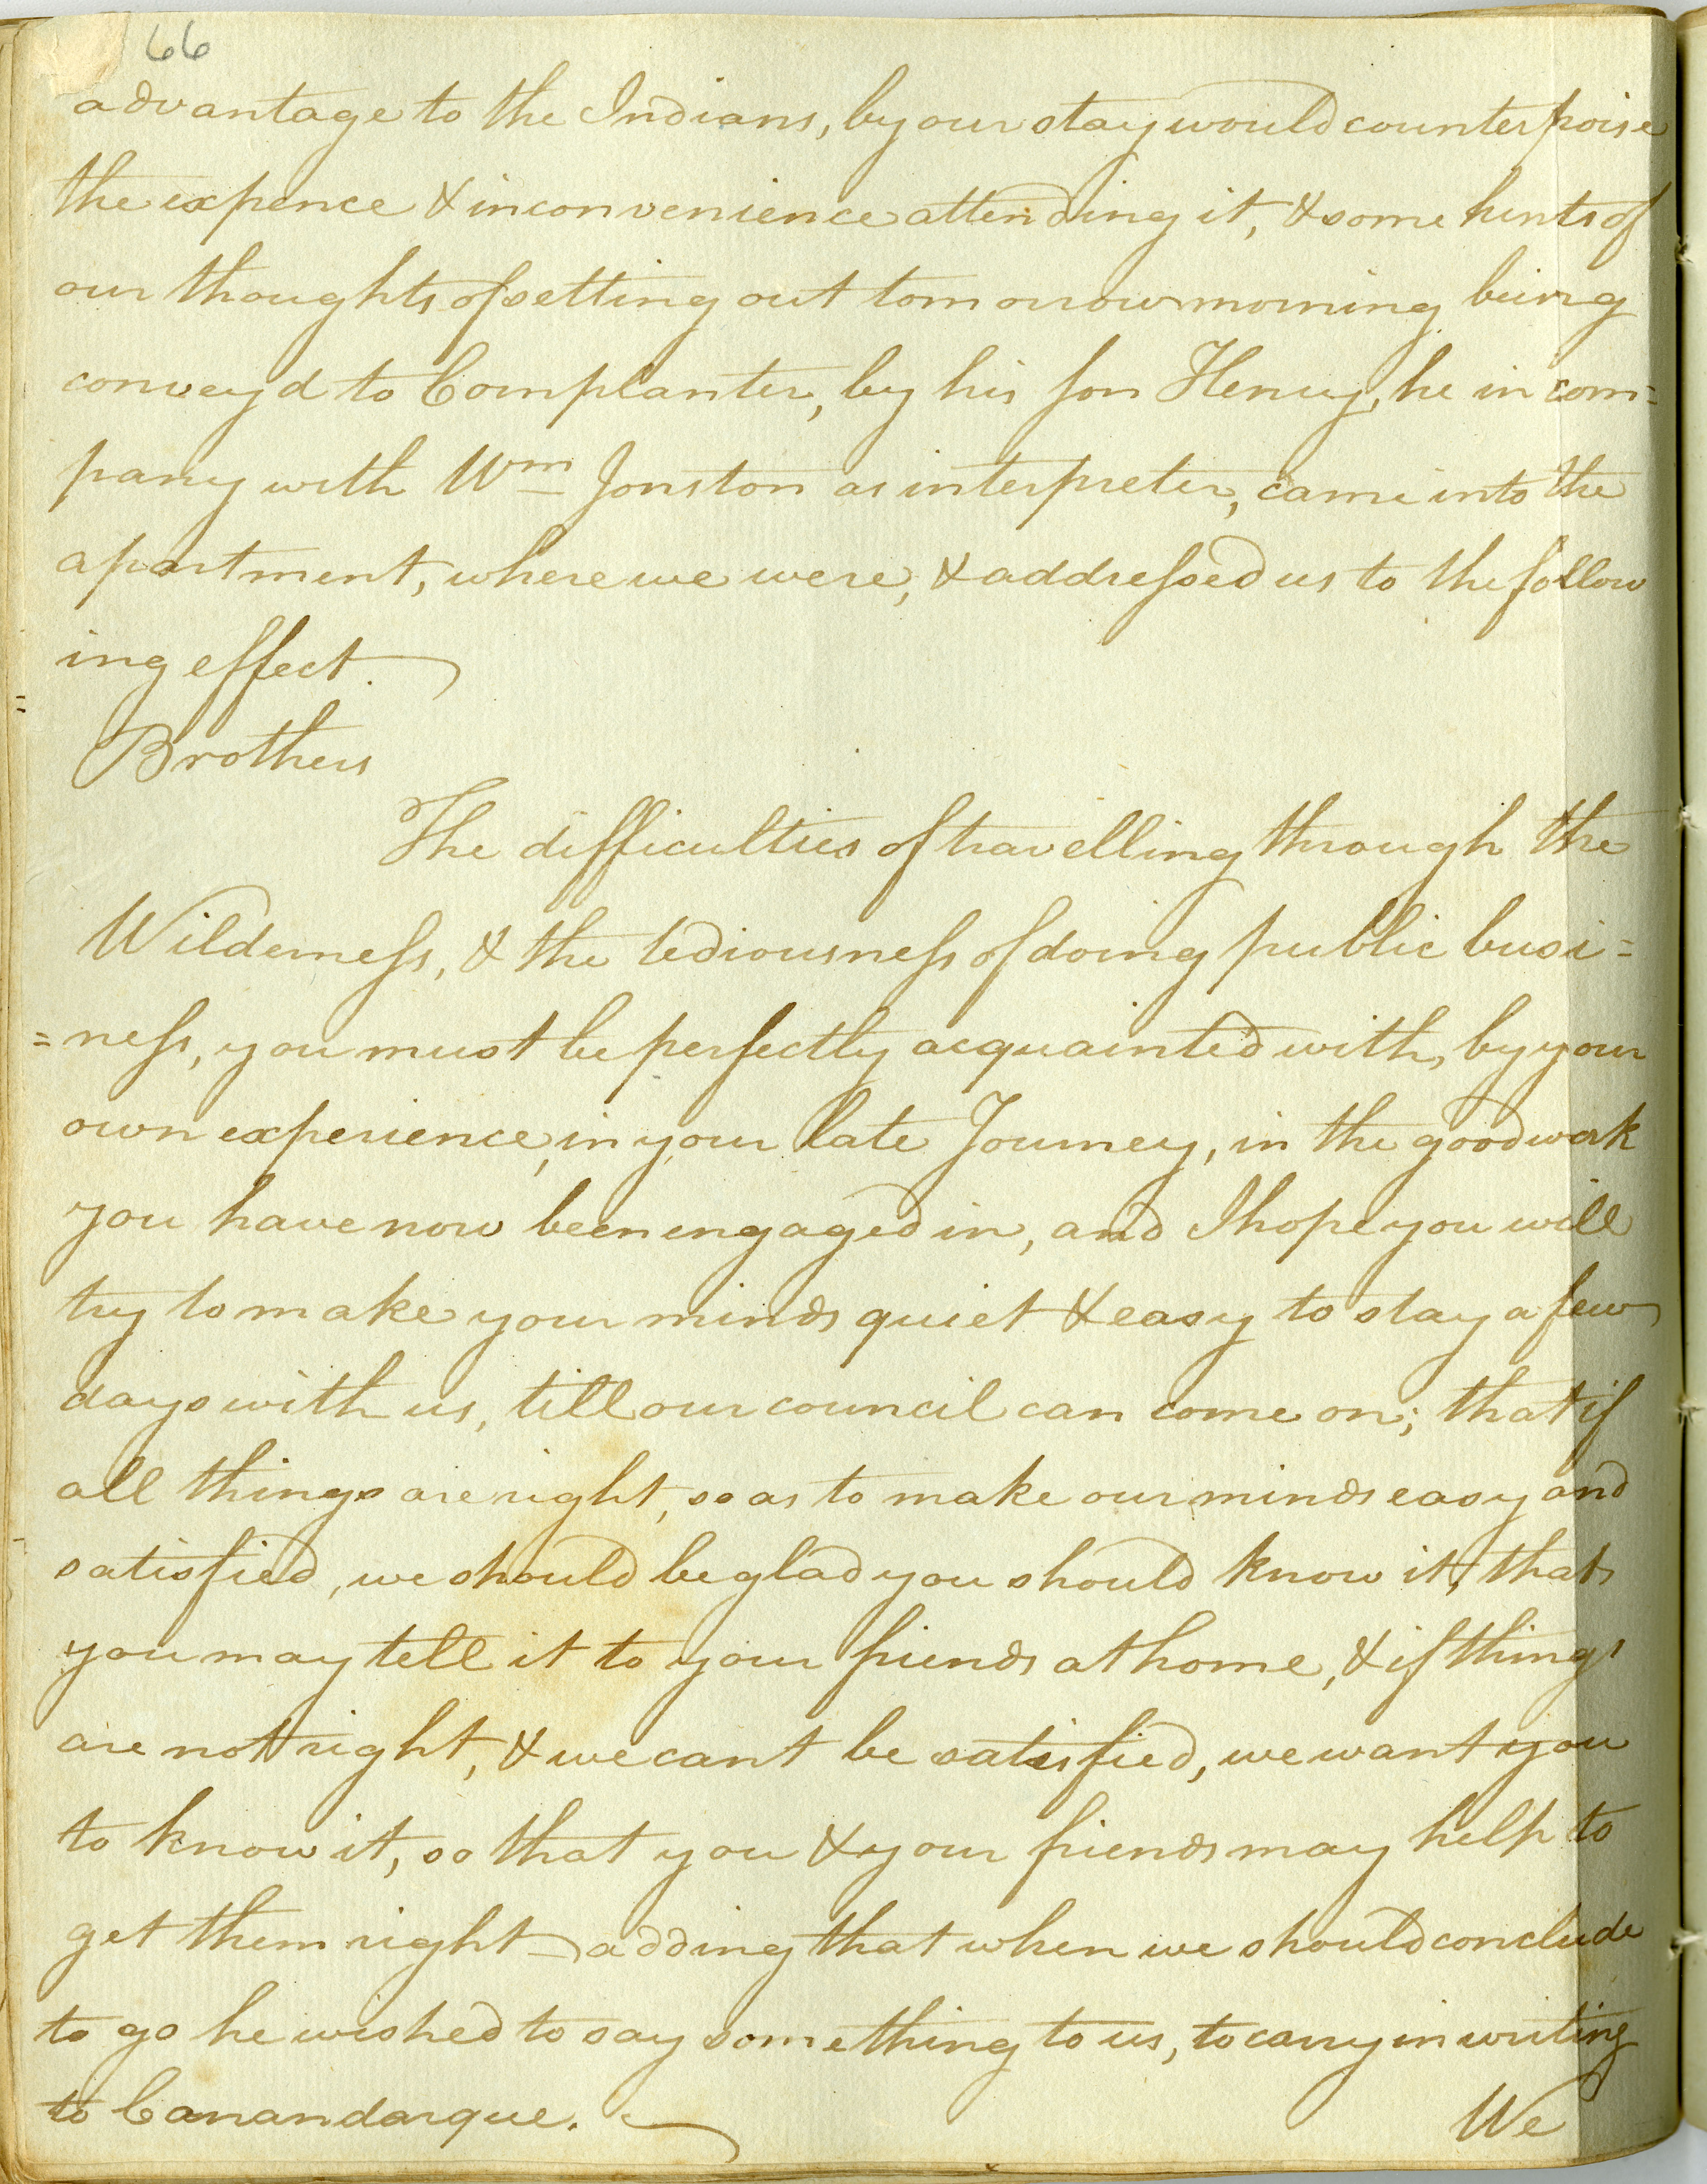 66
advantage to the Indians, by our stay would counterpoise
the expence & inconvenience attending it, & some hints of
our thoughts of setting out tomorrow morning being
convey'd to Cornplanter, by his son Henry, he in com=
pany with Wm Jonston as interpreter, came into the
apartment, where we were, & addressed us to the follow
ing effect.
Brothers
The difficulties of travelling through the
Wilderness, & the tediousness of doing public busi=
=ness, you must be perfectly acquainted with, by your
own experience, in your late Journey, in the good work
you have now been engaged in, and I hope you will
try to make your minds quiet & easy to stay a few
days with us, till our council can come on; that if
all things are right, so as to make our minds easy and
satisfied, we should be glad you should know it, that
you may tell it to your friends at home, & if things
are not right, & we cant be satisfied, we want you
to know it, so that you & your friends may help to
get them right – adding that when we should conclude
to go he wished to say something to us, to carry in writing
to Canandarque.
We